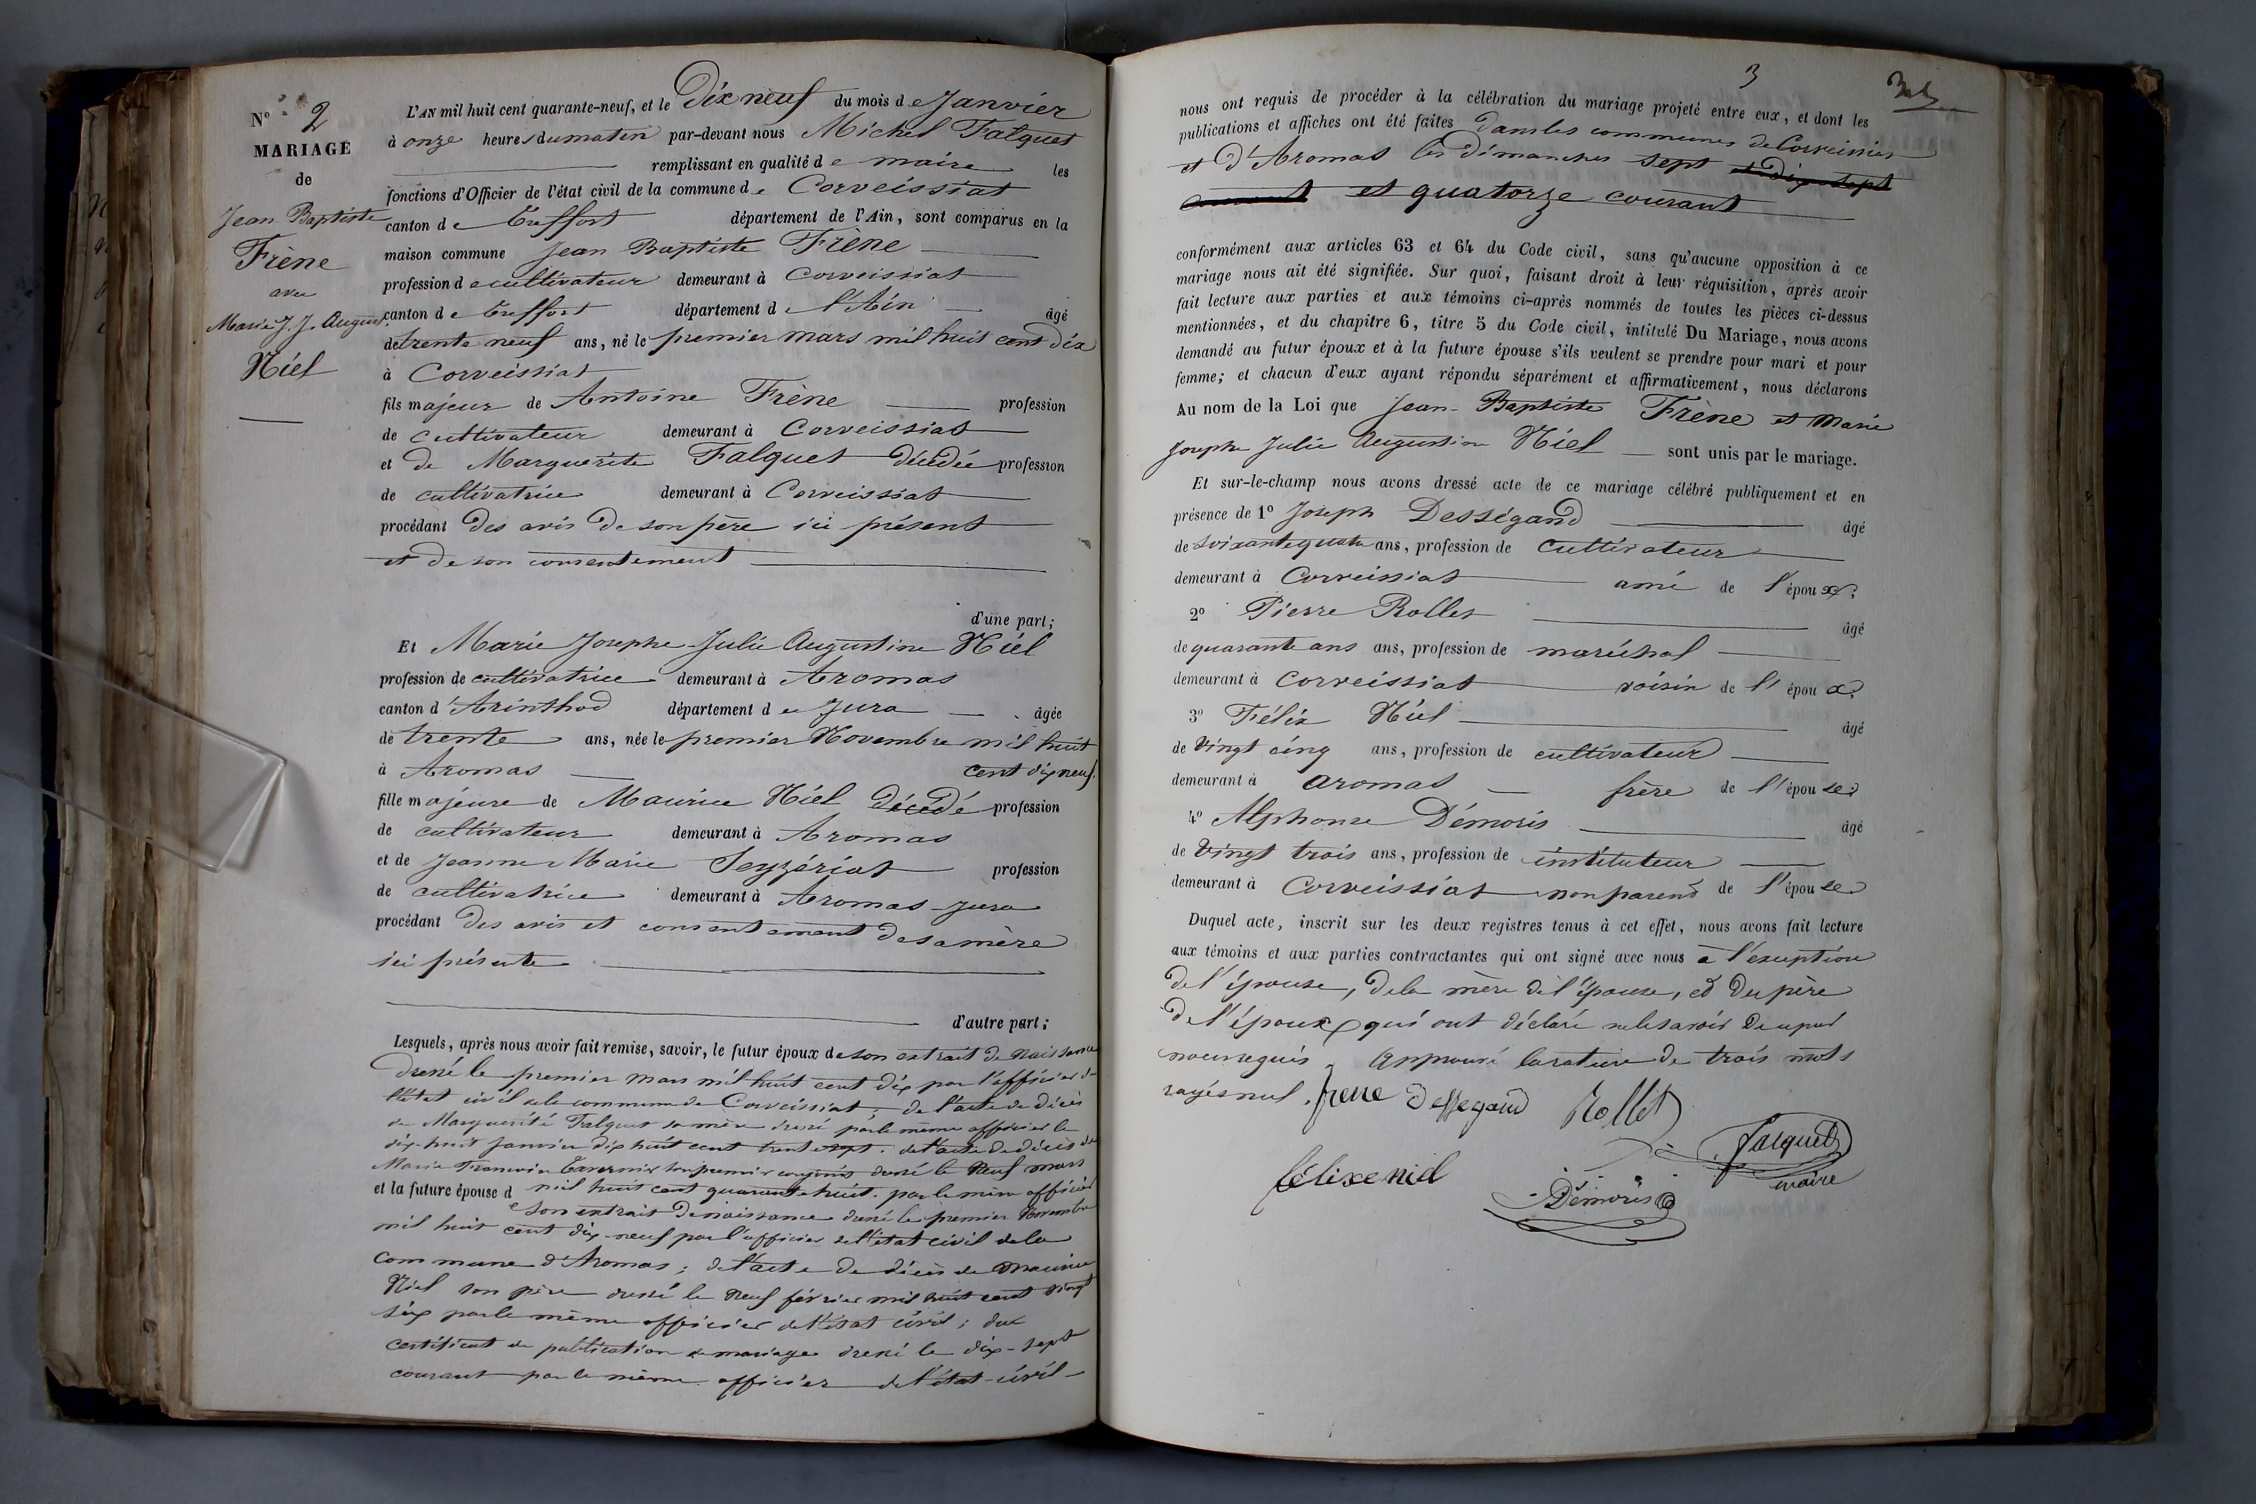 N° 2
MARIAGE
de
Jean Baptiste
Frène
avec
Marie J. J. August.
Niel
L'AN mil huit cent quarante-neuf, et le Dix neuf du mois de Janvier
à onze heures du matin par-devant nous Michel Falquet
remplissant en qualité de maire les
fonctions d'Officier de l'état civil de la commune de Corveissiat
canton de Treffort département de l'Ain, sont comparus en la
maison commune Jean Baptiste Frène
profession de cultivateur demeurant à Corveissiat
canton de Treffort département de l'Ain âgé
de trente neuf ans, né le premier mars mil huit cent dix
à Corveissiat
fils majeur de Antoine Frène profession
de cultivateur demeurant à Corveissiat
et de Marguerite Falquet décédée profession
de cultivatrice demeurant à Corveissiat
procédant des avis de son père ici présent
et de son consentement
d'une part;
Et Marie Josephe Julie Augustine Niel
profession de cultivatrice demeurant à Aromas
canton d'Arinthod département de Jura âgée
de trente ans, née le premier Novembre mil huit
à Aromas cent dix neuf.
fille majeure de Maurice Niel décédé profession
de cultivateur demeurant à Aromas
et de Jeanne Marie Seyzériat profession
de cultivatrice demeurant à Aromas Jura
procédant des avis et consentement de sa mère
ici présente
d'autre part;
Lesquels, après nous avoir fait remise, savoir, le futur époux de son extrait de naissance
dressé le premier mars mil huit cent dix par l'officier de
l'état civil de la commune de Corveissiat; de l'acte de décès
de Marguerite Falquet sa mère dressé par le même officier le
dix huit janvier dix huit cent trente sept. de l'acte de décès de
Marie dressé le neuf mars
et la future épouse d mil huit cent quarante huit. par le même officier
e son extrait de naissance dressé le premier Novembre
mil huit cent dix-neuf par l'officier de l'état civil de la
commune d'Aromas; de l'acte de décès de Maurice
Niel son père dressé le neuf février mil huit cent vingt
six par le même officier de l'état civil; du
certificat de publication de mariage dressé le dix-sept
courant par le même officier de l'état-civil
3
nous ont requis de procéder à la célébration du mariage projeté entre eux, et dont les
publications et affiches ont été faites dans les communes de Corveissiat
et d'Aromas les dimanches sept et dix-sept
courant et quatorze courant
conformément aux articles 63 et 64 du Code civil, sans qu'aucune opposition à ce
mariage nous ait été signifiée. Sur quoi, faisant droit à leur réquisition, après avoir
fait lecture aux parties et aux témoins ci-après nommés de toutes les pièces ci-dessus
mentionnées, et du chapitre 6, titre 5 du Code civil, intitulé Du Mariage, nous avons
demandé au futur époux et à la future épouse s'ils veulent se prendre pour mari et pour
femme; et chacun d'eux ayant répondu séparément et affirmativement, nous déclarons
Au nom de la Loi que Jean-Baptiste Frène et Marie
Josephe Julie Augustine Niel sont unis par le mariage.
Et sur-le-champ nous avons dressé acte de ce mariage célébré publiquement et en
présence de 1° Joseph Dességand âgé
de soixante quatre ans, profession de cultivateur
demeurant à Corveissiat ami de l'époux;
2° Pierre Rollet âgé
de quarante ans ans, profession de maréchal
demeurant à Corveissiat voisin de l'époux;
3° Félix Niel âgé
de vingt cinq ans, profession de cultivateur
demeurant à aromas frère de l'épouse;
4° Alphonse Démoris âgé
de vingt trois ans, profession de instituteur
demeurant à Corveissiat non parent de l'épouse
Duquel acte, inscrit sur les deux registres tenus à cet effet, nous avons fait lecture
aux témoins et aux parties contractantes qui ont signé avec nous à l'exception
de l'épouse, de la mère de l'épouse, et du père
de l'époux qui ont déclaré ne le savoir de ce par
nous requis. Approuvé la rature de trois mots
rayés nul. frene Dessegand Rollet
Falquet
maire
félixe niel
Démoris